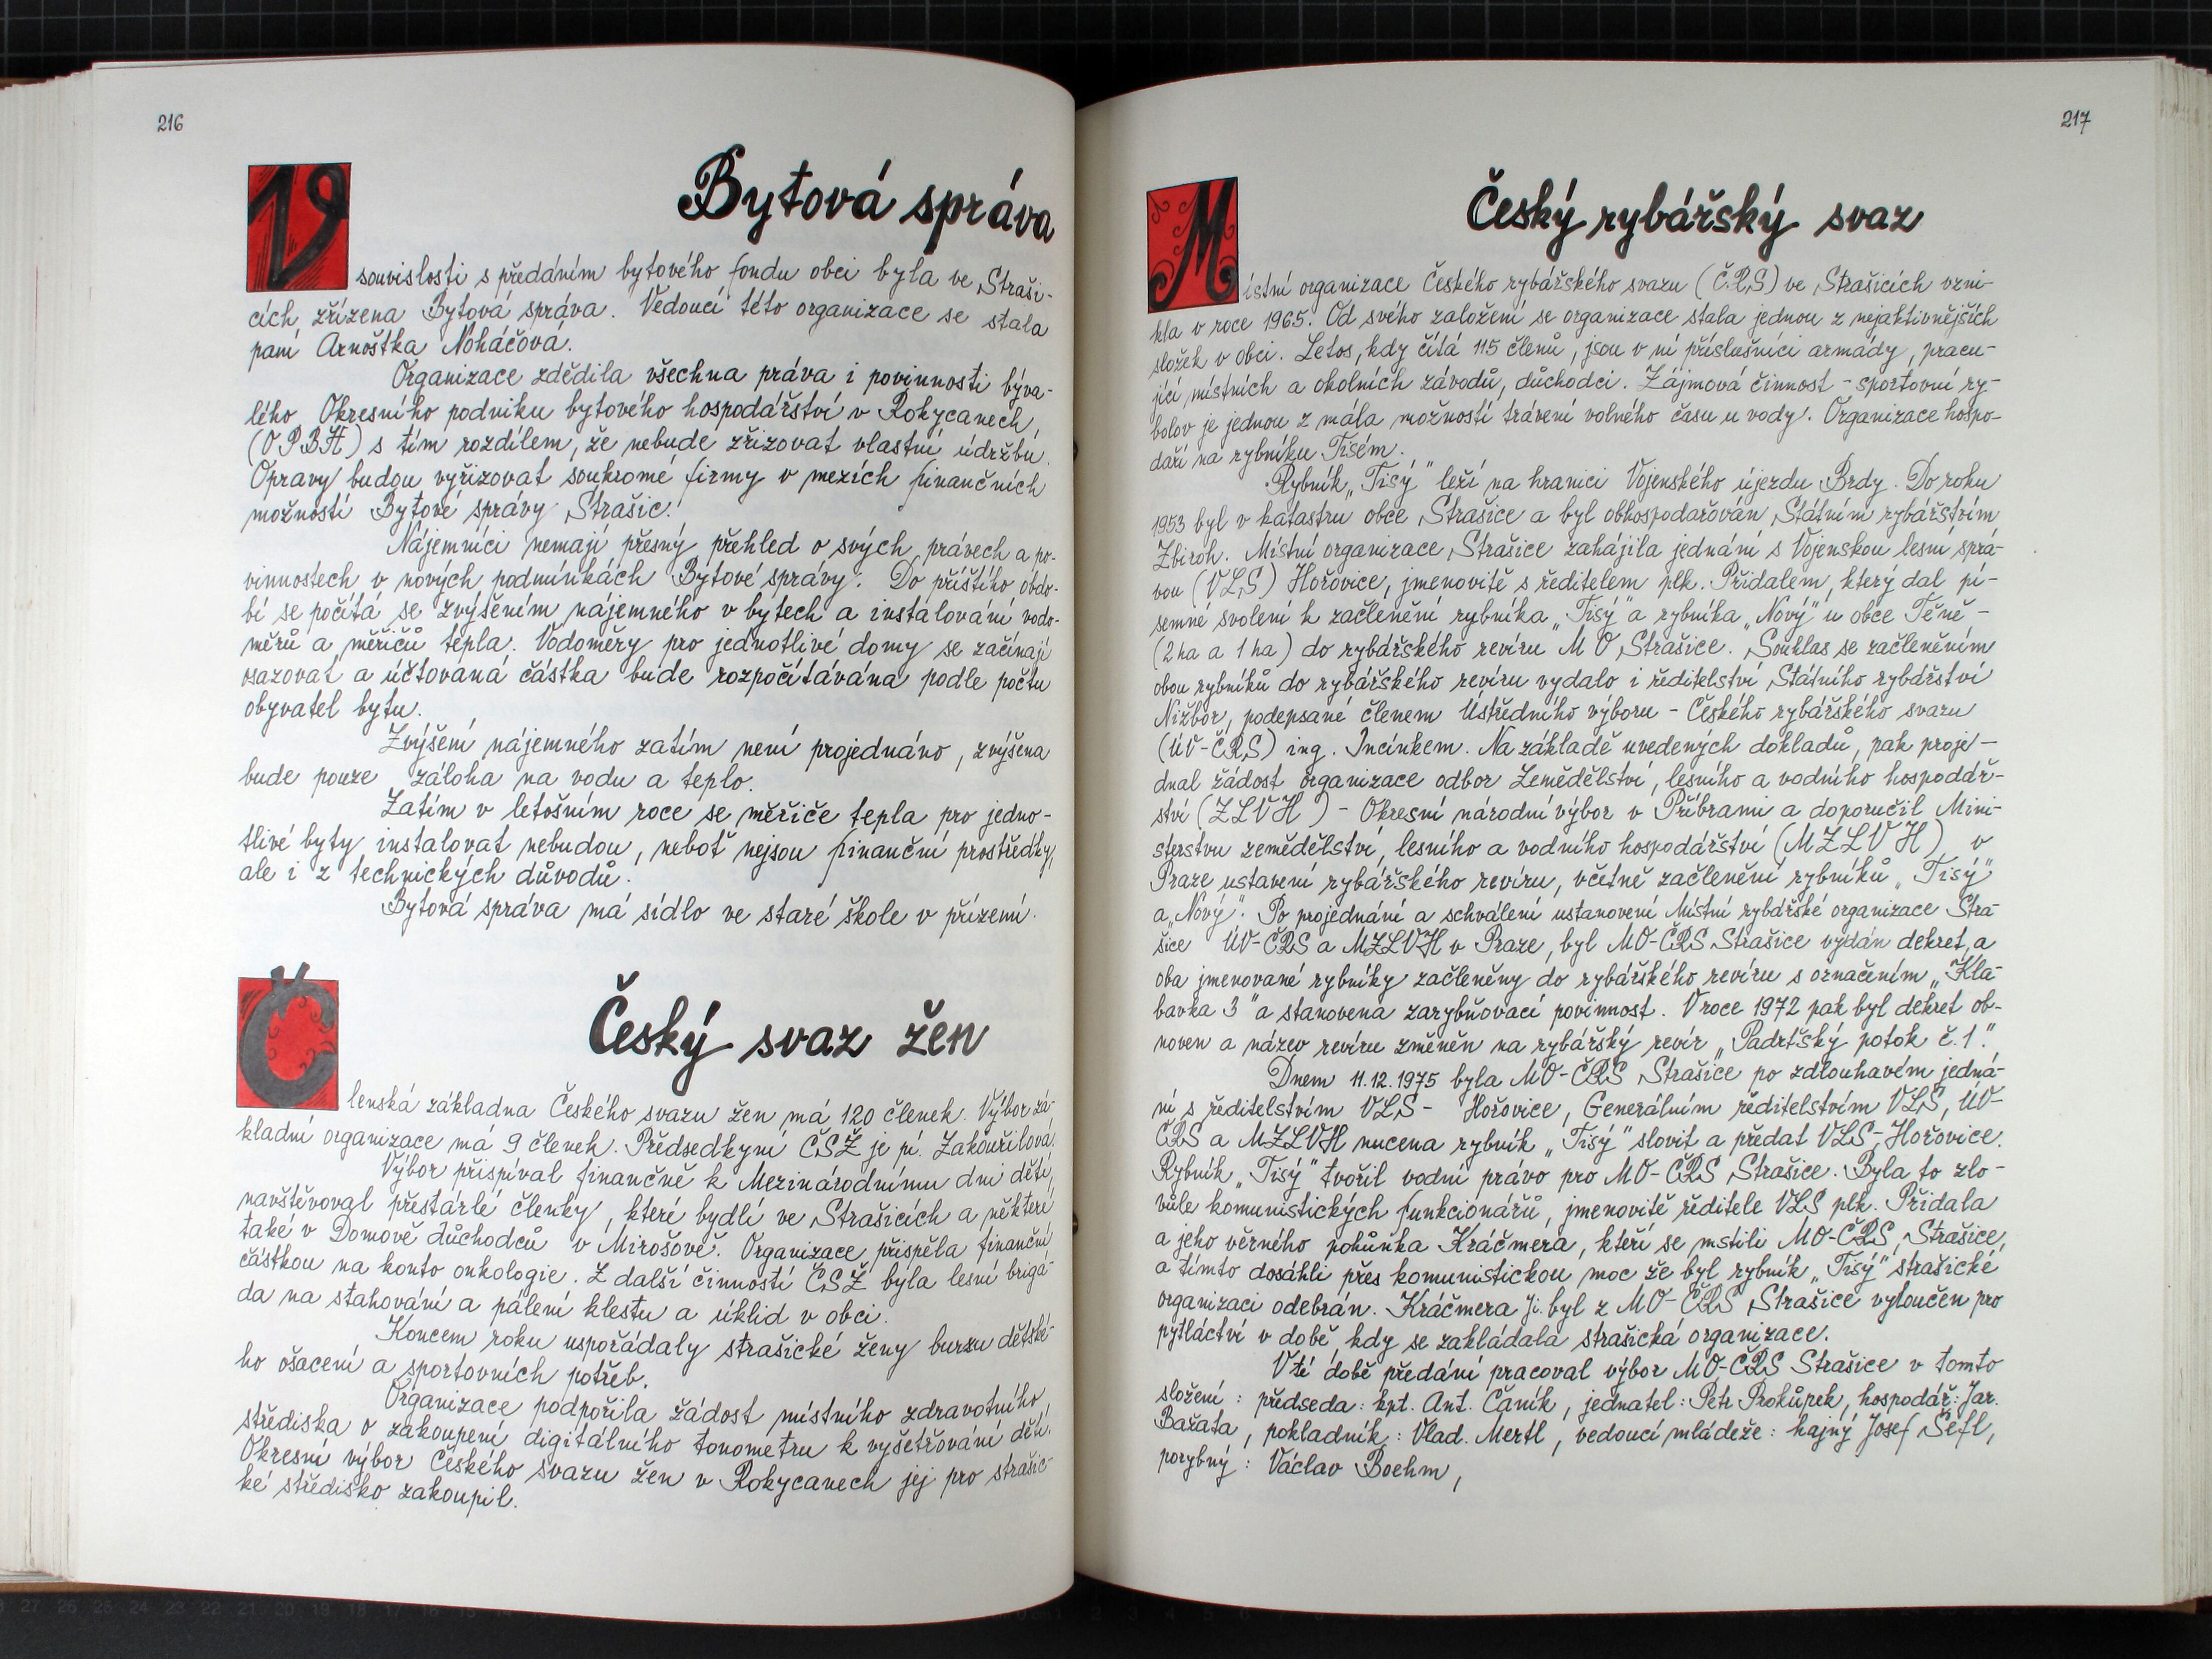 216
Bytová správa
V souvislosti s předáním bytového fondu obci byla ve Straši-
cích zřízena Bytová správa. Vedoucí této organizace se stala
paní Arnoštka Noháčová.
Organizace zdědila všechna práva i povinnosti býva-
lého Okresního podniku bytového hospodářství v Rokycanech,
(OPBH) s tím rozdílem, že nebude zřizovat vlastní údržbu.
Opravy budou vyřizovat soukromé firmy v mezích finančních
možností Bytové správy Strašic.
Nájemníci nemají přesný přehled o svých právech a po-
vinnostech v nových podmínkách Bytové správy. Do příštího obdo-
bí se počítá se zvýšením nájemného v bytech a instalování vodo-
měrů a měřičů tepla. Vodoměry pro jednotlivé domy se začínají
osazovat a účtovaná částka bude rozpočítávána podle počtu
obyvatel bytu.
Zvýšení nájemného zatím není projednáno, zvýšena
bude pouze záloha na vodu a teplo.
Zatím v letošním roce se měřiče tepla pro jedno-
tlivé byty instalovat nebudou, neboť nejsou finanční prostředky,
ale i z technických důvodů.
Bytová správa má sídlo ve staré škole v přízemí.
Český svaz žen
Členská základna Českého svazu žen má 120 členek. Výbor zá-
kladní organizace má 9 členek. Předsedkyní ČSŽ je pí. Zakouřilová.
Výbor přispíval finančně k Mezinárodnímu dni dětí,
navštěvoval přestárlé členky, které bydlí ve Strašicích a některé
také v Domově důchodců v Mirošově. Organizace přispěla finanční
částkou na konto onkologie. Z další činností ČSŽ byla lesní brigá-
da na stahování a pálení klestu a úklid v obci.
Koncem roku uspořádaly strašické ženy burzu dětské-
ho ošacení a sportovních potřeb.
Organizace podpořila žádost místního zdravotního
střediska o zakoupení digitálního tonometru k vyšetřování dětí.
Okresní výbor Českého svazu žen v Rokycanech jej pro strašic-
ké středisko zakoupil.
217
Český rybářský svaz
Místní organizace Českého rybářského svazu (ČRS) ve Strašicích vzni-
kla v roce 1965. Od svého založení se organizace stala jednou z nejaktivnějších
složek v obci. Letos, kdy čítá 115 členů, jsou v ní příslušníci armády, pracu-
jící místních a okolních závodů, důchodci. Zájmová činnost - sportovní ry-
bolov je jednou z mála možností trávení volného času u vody. Organizace hospo-
daří na rybníku Tisém.
Rybník „Tisý" leží na hranici Vojenského újezdu Brdy. Do roku
1953 byl v katastru obce Strašice a byl obhospodařován Státním rybářstvím
Zbiroh. Místní organizace Strašice zahájila jednání s Vojenskou lesní sprá-
vou (VLS) Hořovice, jmenovitě s ředitelem plk. Přidalem, který dal pí-
semné svolení k začlenění rybníka „Tisý" a rybníka „Nový" u obce Těně -
(2 ha a 1 ha) do rybářského revíru MO Strašice. Souhlas se začleněním
obou rybníků do rybářského revíru vydalo i ředitelství Státního rybářství
Nižbor, podepsané členem Ústředního výboru - Českého rybářského svazu
(ÚV-ČRS) ing. Incínkem. Na základě uvedených dokladů, pak proje-
dnal žádost organizace odbor Zemědělství, lesního a vodního hospodář-
ství (ZLVH) - Okresní národní výbor v Příbrami a doporučil Mini-
sterstvu zemědělství, lesního a vodního hospodářství (MZLVH) v
Praze ustavení rybářského revíru, včetně začlenění rybníků „Tisý"
a „Nový". Po projednání a schválení ustanovení Místní rybářské organizace Stra-
šice ÚV-ČRS a MZLVH v Praze, byl MO-ČRS Strašice vydán dekret, a
oba jmenované rybníky začleněny do rybářského revíru s označením „Kla-
bavka 3" a stanovena zarybňovací povinnost. V roce 1972 pak byl dekret ob-
noven a název revíru změněn na rybářský revír „Padrťský potok č. 1".
Dnem 11.12.1975 byla MO-ČRS Strašice po zdlouhavém jedná-
ní s ředitelstvím VLS - Hořovice, Generálním ředitelstvím VLS, ÚV-
ČRS a MZLVH nucena rybník „Tisý" slovit a předat VLS-Hořovice.
Rybník „Tisý" tvořil vodní právo pro MO-ČRS Strašice. Byla to zlo-
vůle komunistických funkcionářů, jmenovitě ředitele VLS plk. Přidala
a jeho věrného pohůnka Kráčmera, kteří se mstili MO-ČRS, Strašice,
a tímto dosáhli přes komunistickou moc že byl rybník „Tisý" strašické
organizaci odebrán. Kráčmera Ji. byl z MO-ČRS Strašice vyloučen pro
pytláctví v době, kdy se zakládala strašická organizace.
V té době předání pracoval výbor MO-ČRS Strašice v tomto
složení: předseda: kpt. Ant. Čaník, jednatel: Petr Prokůpek, hospodář: Jar.
Bažata, pokladník: Vlad. Mertl, vedoucí mládeže: hajný Josef Šefl,
porybný: Václav Boehm,